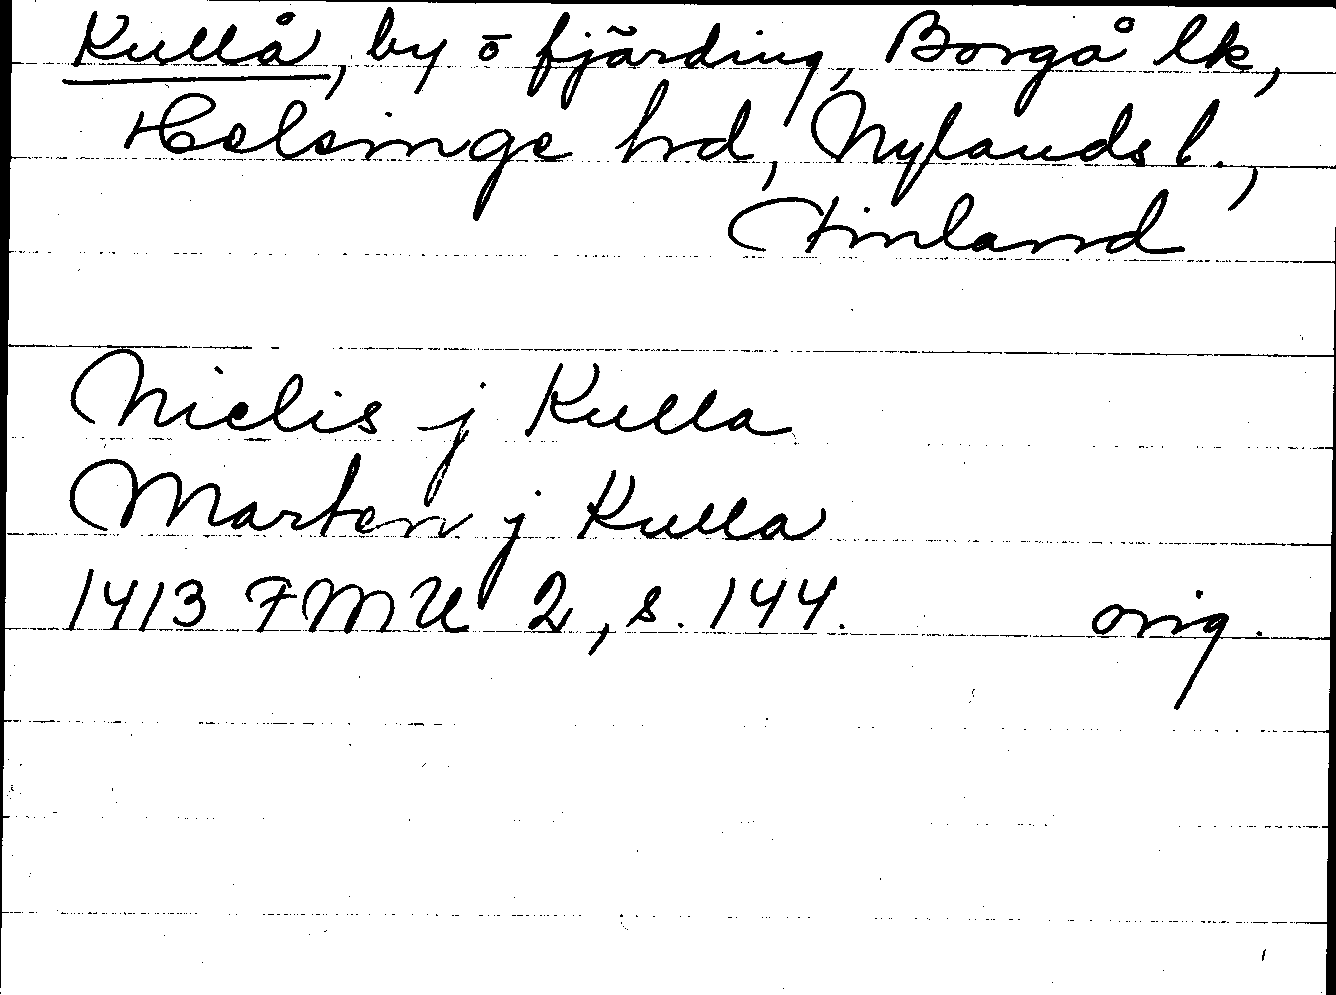 Kullå, by ō fjärding, Borgå lk,
Helsinge hrd, Nylands l.,
Finland
Nielis j Kulla
Marten j Kulla
1413 FMU 2, s. 144. orig.